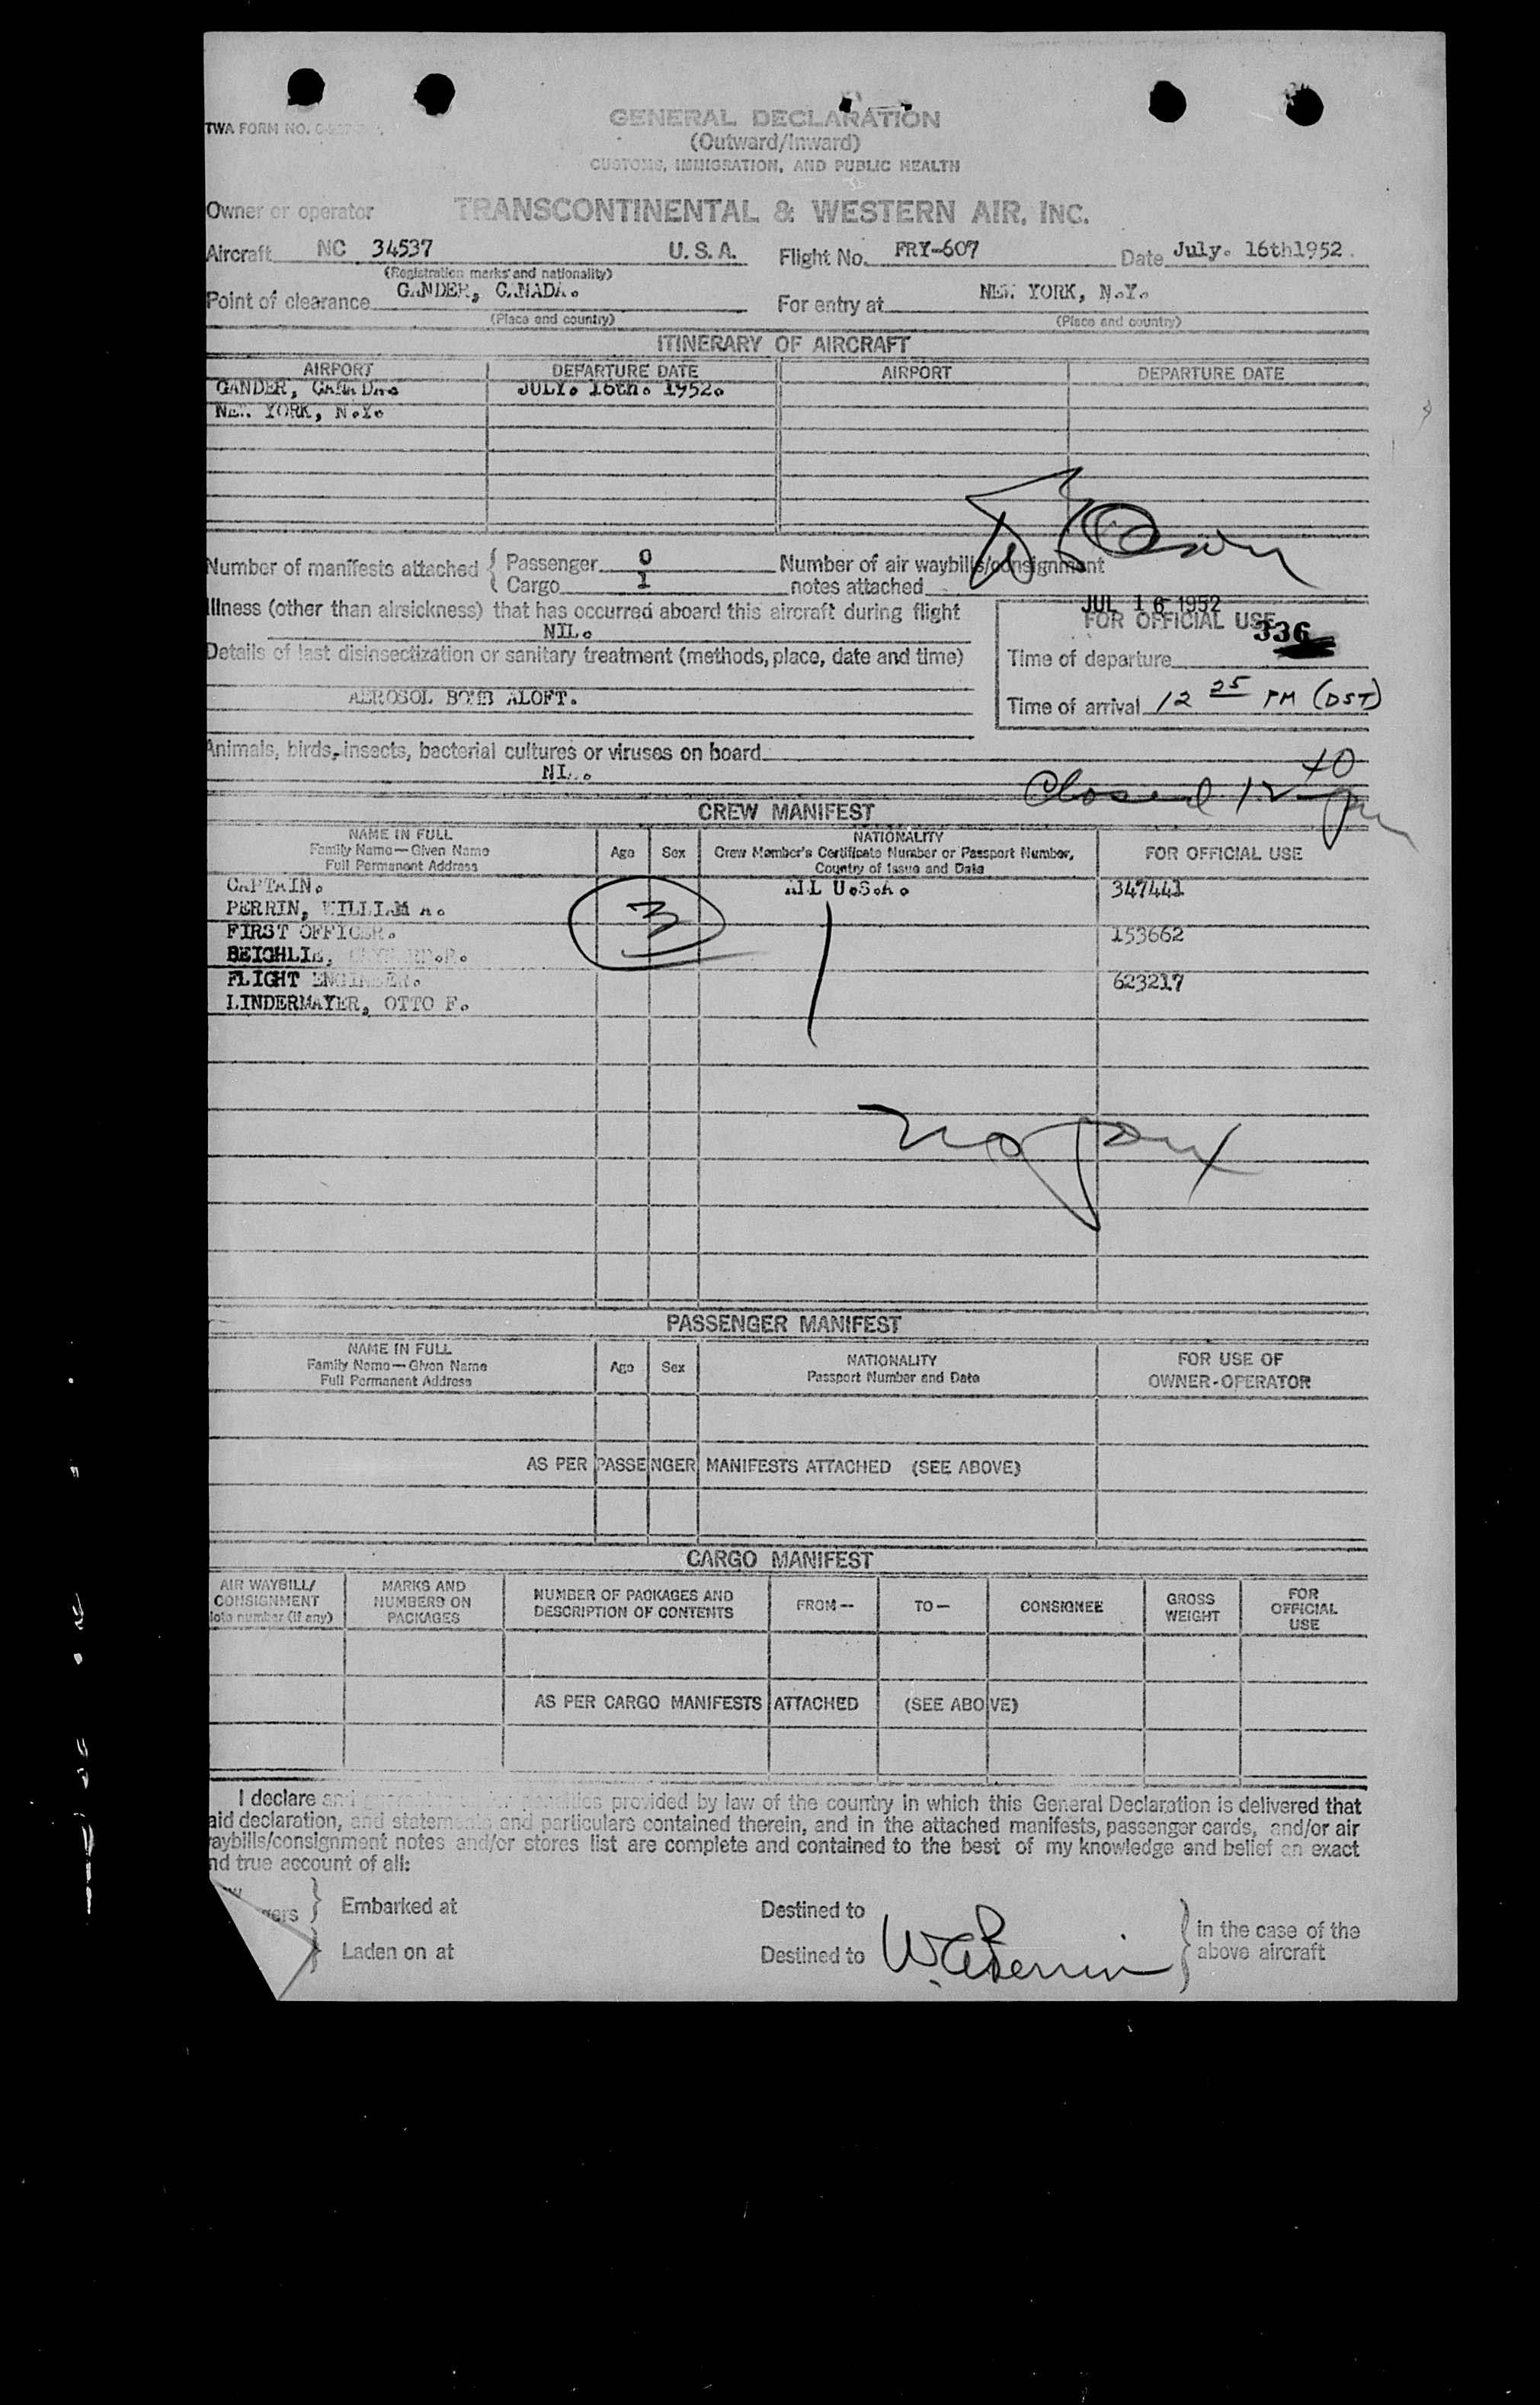 GENERAL DECLARATION
TWA FORM NO.
(Outward/Inward)
CUSTOMS, IMMIGRATION, AND PUBLIC HEALTH
Owner or operator TRANSCONTINENTAL & WESTERN AIR, INC.
Aircraft NC 34537 U.S.A. Flight No. FRY-607 Date July. 16th1952.
(Registration marks and nationality)
Point of clearance GANDER, CANADA. For entry at NEW YORK, N.Y.
(Place and country) (Place and country)
ITINERARY OF AIRCRAFT
AIRPORT DEPARTURE DATE AIRPORT DEPARTURE DATE
GANDER, CANADA. JULY. 16th. 1952.
NEW YORK, N.Y.
Number of manifests attached { Passenger 0 Number of air waybills/consignment
Cargo 1 notes attached
Illness (other than airsickness) that has occurred aboard this aircraft during flight
NIL.
JUL 16 1952
FOR OFFICIAL USE
336
Details of last disinsectization or sanitary treatment (methods, place, date and time)
Time of departure
AEROSOL BOMB ALOFT.
Time of arrival 12 25 PM (DST)
Animals, birds, insects, bacterial cultures or viruses on board
NIL.
Closed 12 40 pm
CREW MANIFEST
NAME IN FULL
Family Name—Given Name
Full Permanent Address
Age Sex
NATIONALITY
Crew Member's Certificate Number or Passport Number,
Country of Issue and Date
FOR OFFICIAL USE
CAPTAIN. ALL U.S.A. 347441
PERRIN, WILLIAM A.
3
FIRST OFFICER. 153662
BEICHLIE,
FLIGHT ENGINEER. 623217
LINDERMAYER, OTTO F.
no pax
PASSENGER MANIFEST
NAME IN FULL
Family Name—Given Name
Full Permanent Address
Age Sex
NATIONALITY
Passport Number and Date
FOR USE OF
OWNER-OPERATOR
AS PER PASSENGER MANIFESTS ATTACHED (SEE ABOVE)
CARGO MANIFEST
AIR WAYBILL/
CONSIGNMENT
Note number (if any)
MARKS AND
NUMBERS ON
PACKAGES
NUMBER OF PACKAGES AND
DESCRIPTION OF CONTENTS
FROM— TO— CONSIGNEE
GROSS
WEIGHT
FOR
OFFICIAL
USE
AS PER CARGO MANIFESTS ATTACHED (SEE ABOVE)
I declare and penalties provided by law of the country in which this General Declaration is delivered that
aid declaration, and statements and particulars contained therein, and in the attached manifests, passenger cards, and/or air
aybills/consignment notes and/or stores list are complete and contained to the best of my knowledge and belief an exact
nd true account of all:
gers } Embarked at Destined to
} Laden on at Destined to
W A Perrin
} in the case of the
above aircraft